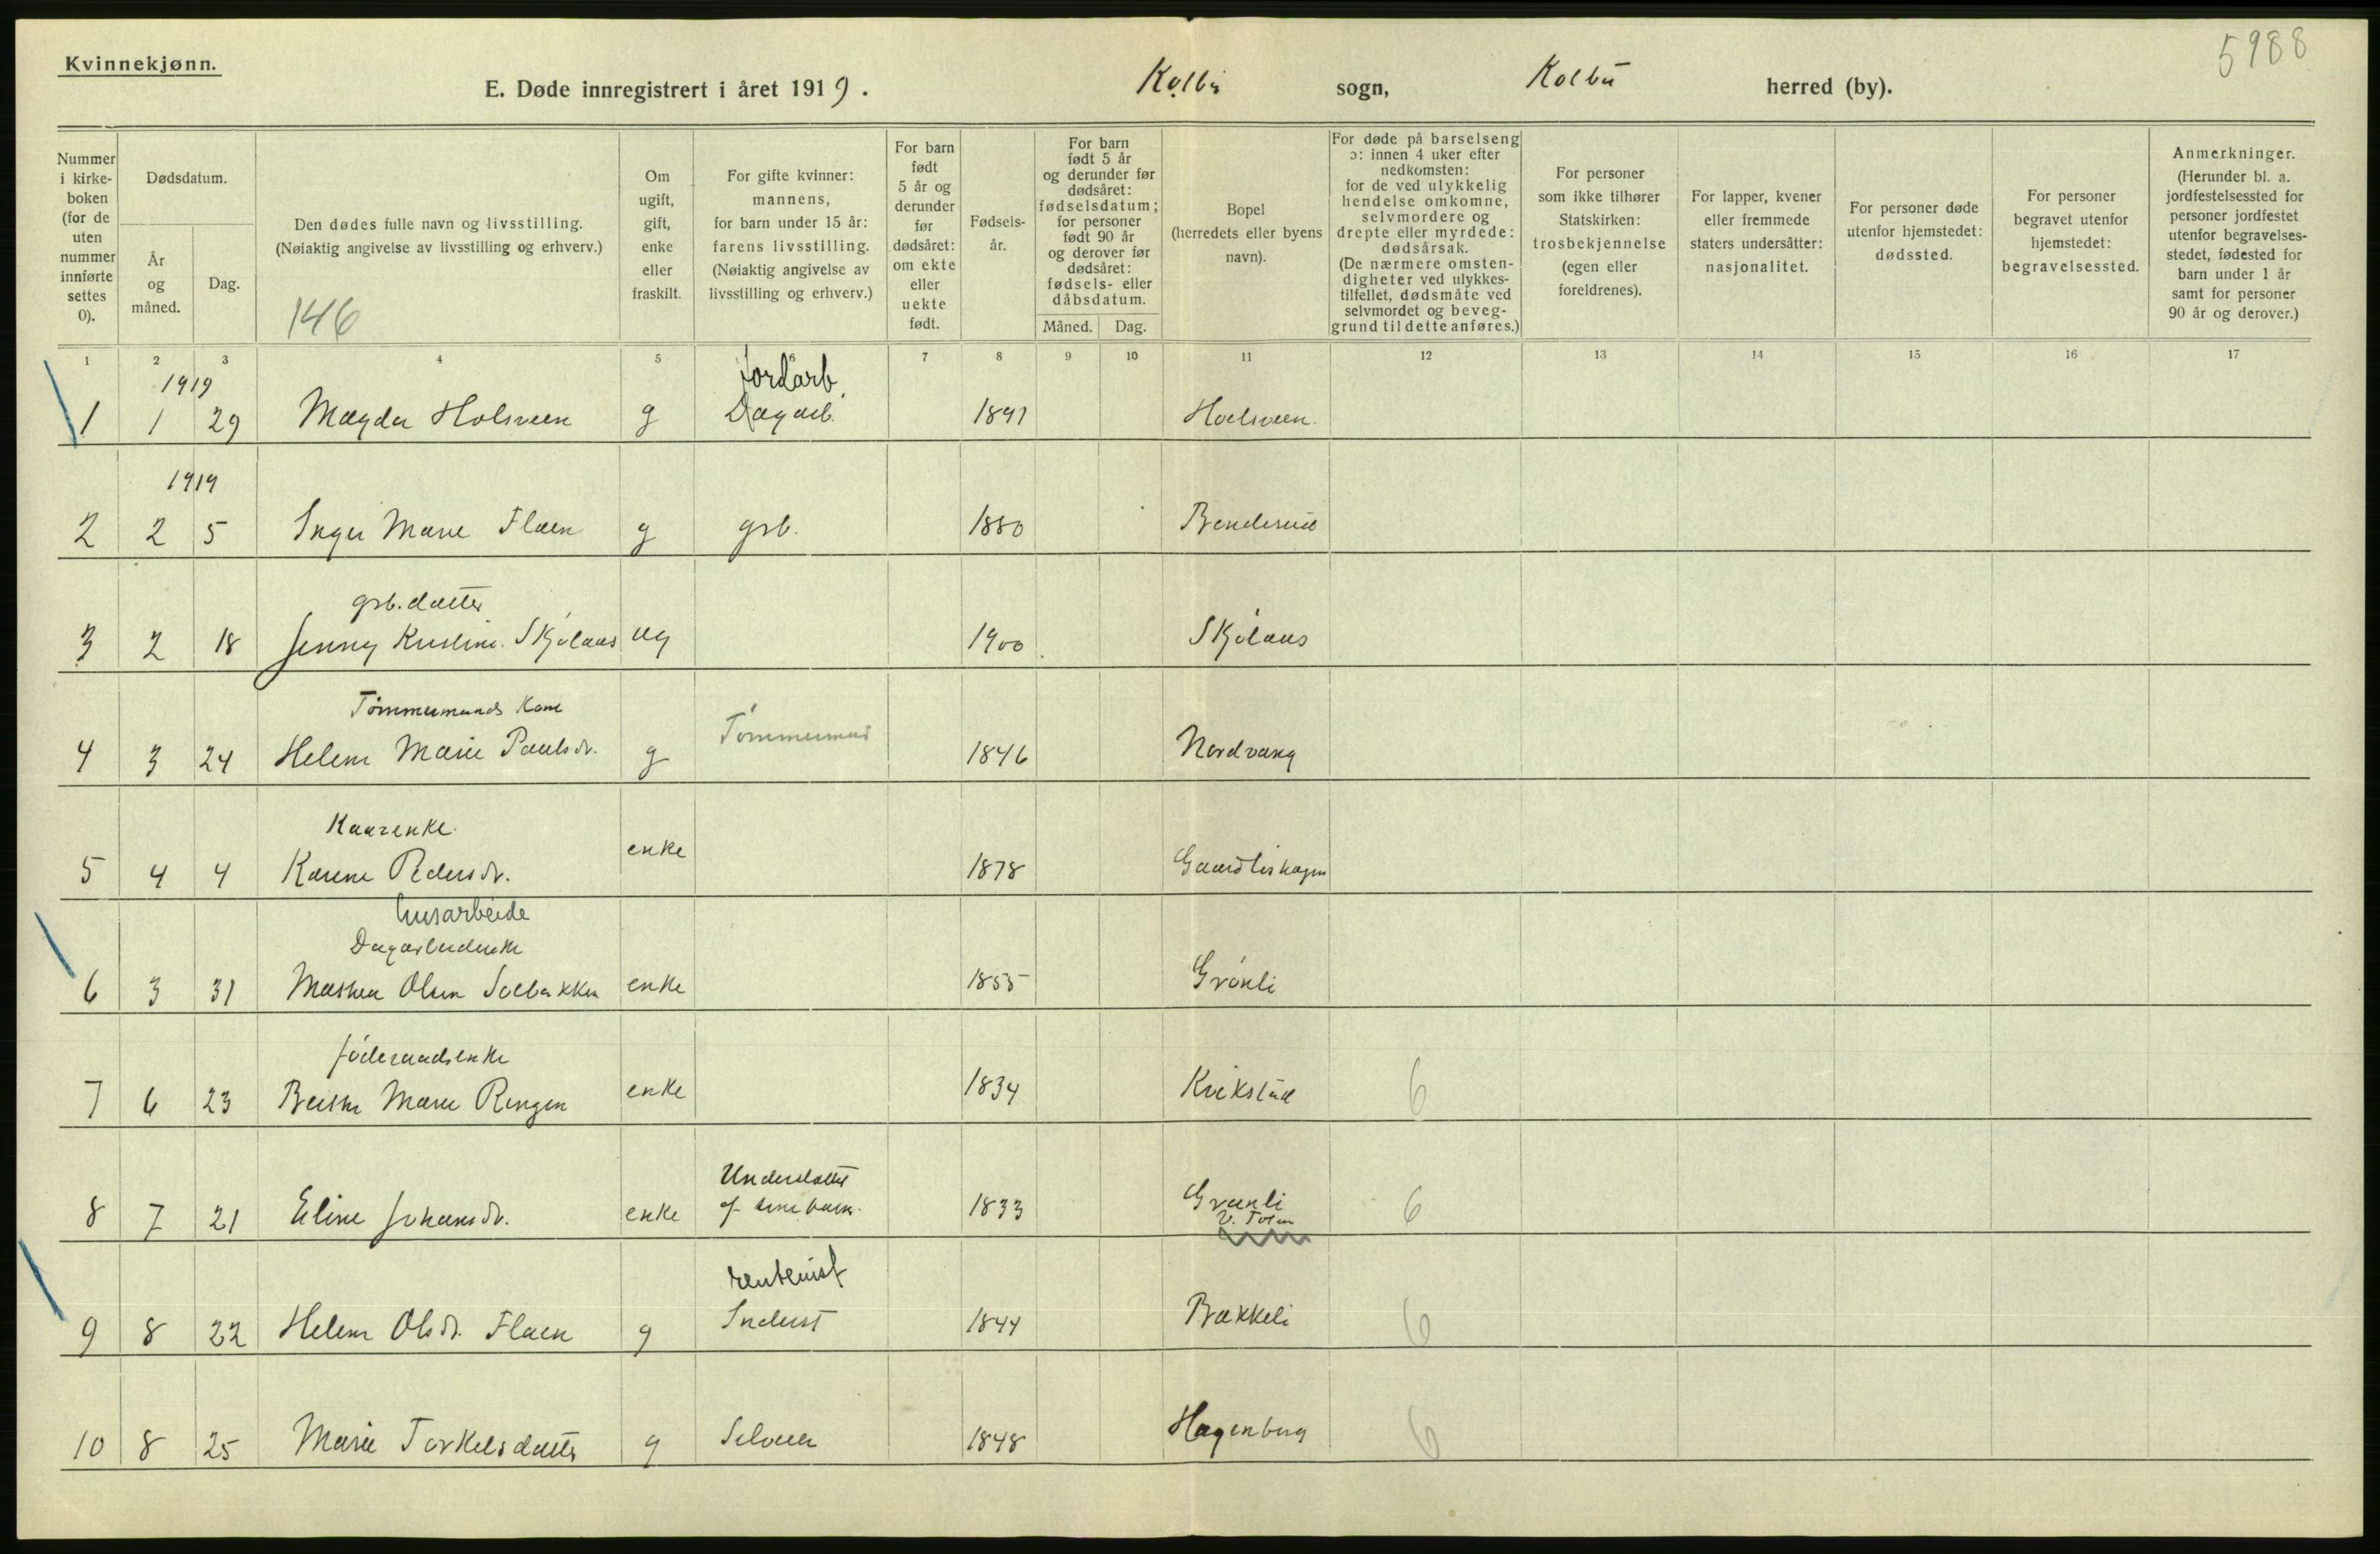 Kvinnekjønn.
5988
E. Døde innregistrert i året 1919.
Kolbu sogn, Kolbu herred (by).
Nummer i kirke- boken (for de uten nummer innførte settes 0).
Dødsdatum.
År og måned.
Dag.
Den dødes fulle navn og livsstilling. (Nøiaktig angivelse av livsstilling og erhverv.)
146
Om ugift, gift, enke eller fraskilt.
For gifte kvinner: mannens, for barn under 15 år: farens livsstilling. (Nøiaktig angivelse av livsstilling og erhverv.)
For barn født 5 år og derunder før dødsåret: om ekte eller uekte født.
Fødsels- år.
For barn født 5 år og derunder før dødsåret: fødselsdatum; for personer født 90 år og derover før dødsåret: fødsels- eller dåbsdatum.
Måned. Dag.
Bopel (herredets eller byens navn).
For døde på barselseng ɔ: innen 4 uker efter nedkomsten: for de ved ulykkelig hendelse omkomne, selvmordere og drepte eller myrdede: dødsårsak. (De nærmere omsten- digheter ved ulykkes- tilfellet, dødsmåte ved selvmordet og beveg- grund til dette anføres.)
For personer som ikke tilhører Statskirken: trosbekjennelse (egen eller foreldrenes).
For lapper, kvener eller fremmede staters undersåtter: nasjonalitet.
For personer døde utenfor hjemstedet: dødssted.
For personer begravet utenfor hjemstedet: begravelsessted.
Anmerkninger. (Herunder bl. a. jordfestelsessted for personer jordfestet utenfor begravelses- stedet, fødested for barn under 1 år samt for personer 90 år og derover.)
1 2 3 4 5 6 7 8 9 10 11 12 13 14 15 16 17
1919 Jordarb.
1 1 29 Magda Holsveen g Dagarb. 1891 Hoelsveen.
1919
2 2 5 Inger Marie Flaen g grb. 1880 Benderud
grb. datter
3 2 18 Jenny Kristine Skjølaas ug 1900 Skjølaas
Tømmermands Kone
4 3 24 Helene Marie Paulsdr. g Tømmermand 1846 Nordvang
Kaarenke.
5 4 4 Karene Pedersdr. enke 1878 Gaardlishagen
husarbeide
Dagarbeiderenke
6 3 31 Mathea Olsen Solbakken enke 1855 Grønli
føderaadsenke
7 6 23 Berthe Marie Ringen enke 1834 Kvikstad 6
Understøttet
8 7 21 Eline Johansdr. enke af sine barn. 1833 Granli 6
V. Toten
rentenist
9 8 22 Helene Olsdr. Flaen g Inderst 1844 Bækkeli 6
10 8 25 Marie Torkelsdatter g Selveier 1848 Hagenberg 6